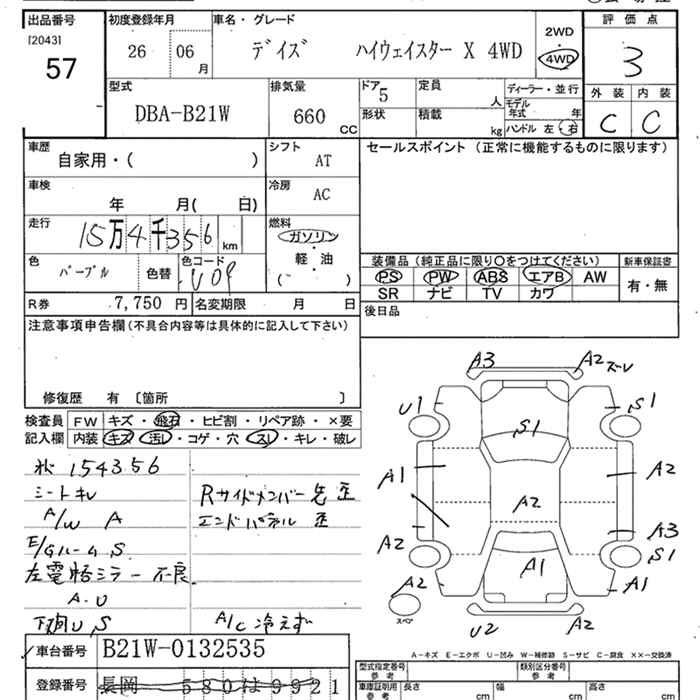 出品番号 初度登録年月 車名・グレード 評価点
[2043] 57 26 06 月 デイズ ハイウェイスター X 4WD 2WD 4WD 3
型式 排気量 ドア 定員 ディーラー・並行 外装 内装
DBA-B21W 660 CC 5 人 モデル年式 年 C C
形状 積載 kg ハンドル 左 右
車歴 シフト セールスポイント (正常に機能するものに限ります)
自家用・( ) AT
車検 冷房
年 月( 日) AC
走行 燃料
15万4千356 km ガソリン
軽・油
( )
色 色コード
パープル 色替
装備品 (純正品に限り○をつけてください) 新車保証書
PS PW ABS エアB AW 有・無
SR ナビ TV カワ
R券 7,750 円 名変期限 月 日 後日品
注意事項申告欄(不具合内容等は具体的に記入して下さい)
修復歴 有 〔箇所 〕
検査員 FW キズ・飛石・ヒビ割・リペア跡・×要
記入欄 内装 キズ・汚レ・コゲ・穴・スレ・キレ・破レ
154356
シートキレ Rサイドメンバー先歪
A/W A エンドパネル 歪
E/Gルーム S
左電格ミラー不良
A.U
下廻U,S A/C冷えず
車台番号 B21W-0132535
登録番号 長岡 580 は 9921
A3 A2 ズレ
U1 S1
S1
A1 A2
A2
A2 A3
S1
A1
A2 A1
スペア
U2 A1
A-キズ E-エクボ U-凹み W-補修跡 S-サビ C-腐食 XX-交換済
型式指定番号 類別区分番号
参考 参考
車庫証明用 長さ 幅 高さ
参考 cm cm cm